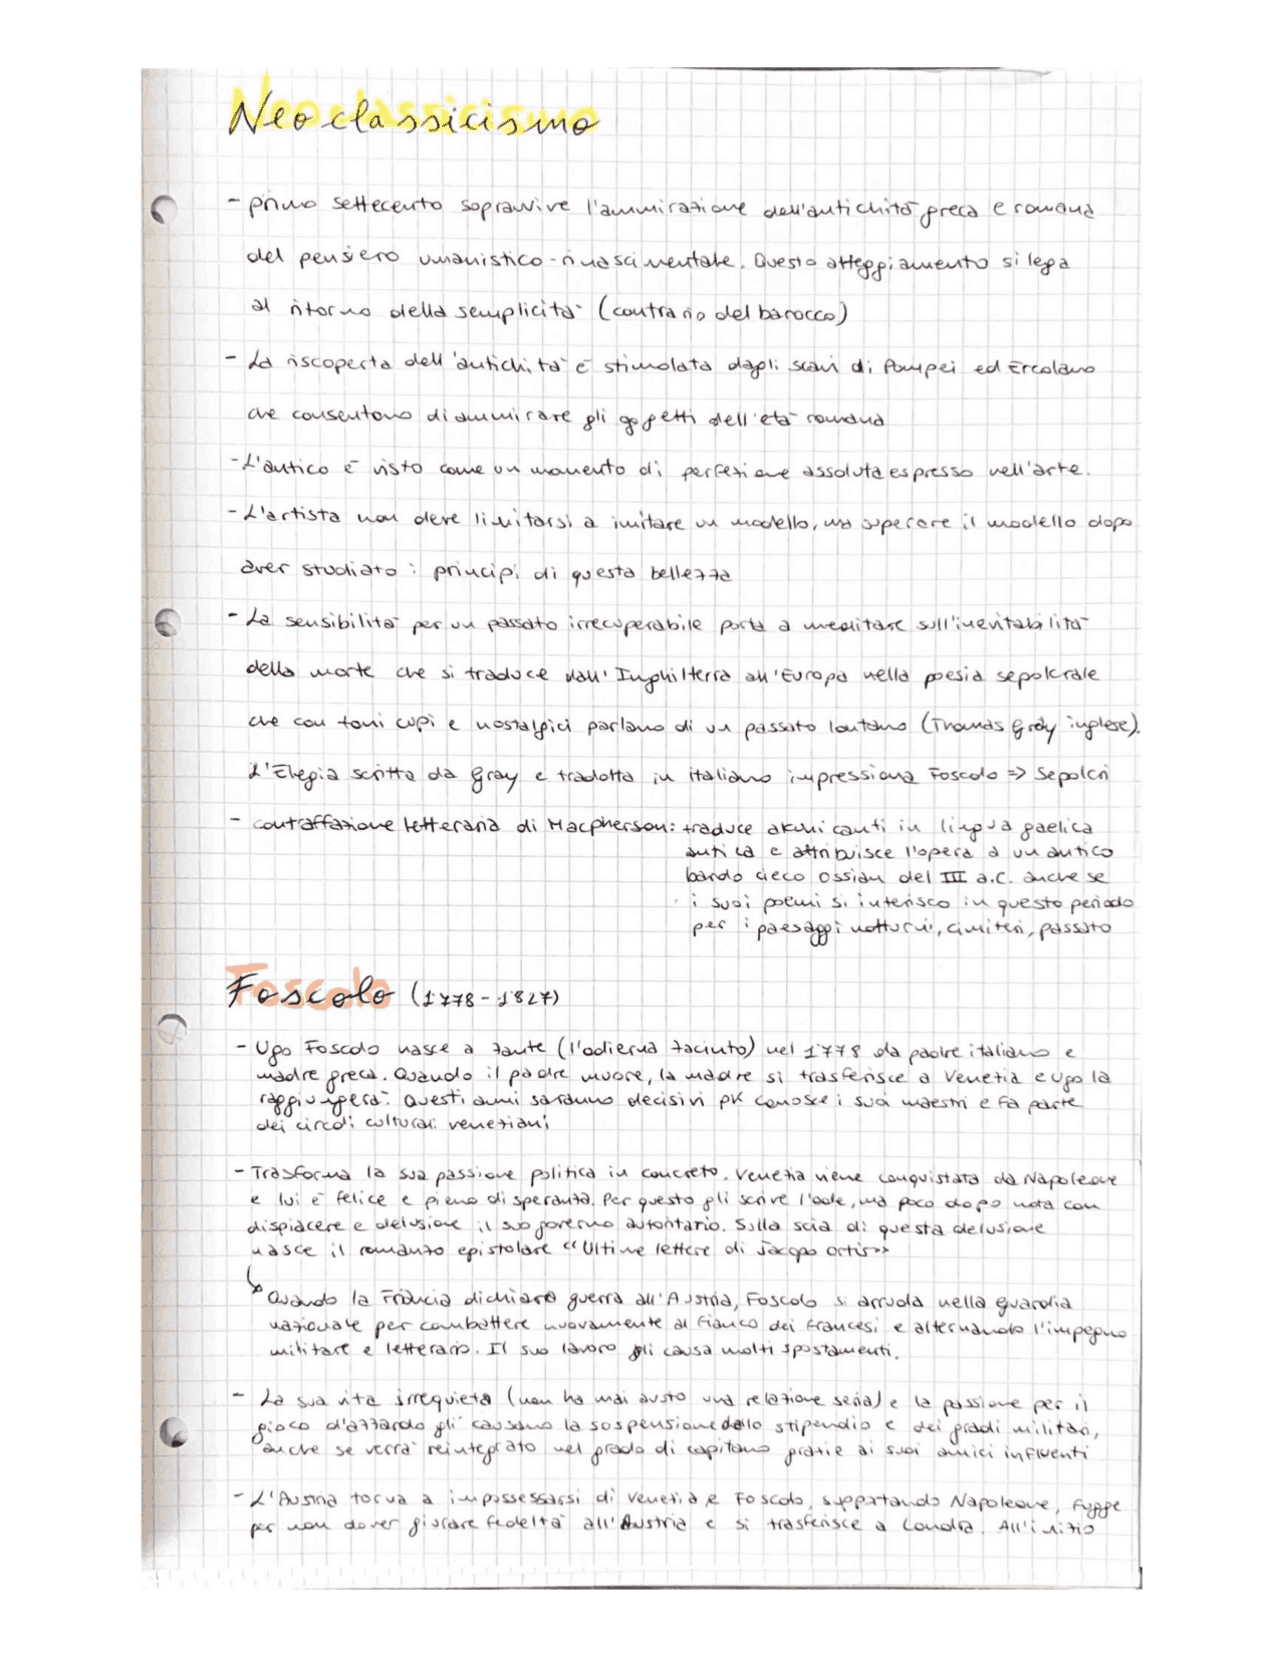 Neoclassicismo
- primo settecento sopravvive l'ammirazione dell'antichità greca e romana
del pensiero umanistico-rinascimentale. Questo atteggiamento si lega
al ritorno della semplicità (contrario del barocco)
- La riscoperta dell'antichità è stimolata dagli scavi di Pompei ed Ercolano
che consentono di ammirare gli oggetti dell'età romana
- L'antico è visto come un momento di perfezione assoluta espresso nell'arte.
- L'artista non deve limitarsi a imitare un modello, ma superare il modello dopo
aver studiato i principi di questa bellezza
- La sensibilità per un passato irrecuperabile porta a meditare sull'inevitabilità
della morte che si traduce dall'Inghilterra all'Europa nella poesia sepolcrale
che con toni cupi e nostalgici parlano di un passato lontano (Thomas Gray inglese).
L'Elegia scritta da Gray e tradotta in italiano impressiona Foscolo => Sepolcri
- contraffazione letteraria di Macpherson: traduce alcuni canti in lingua gaelica
antica e attribuisce l'opera a un antico
bardo cieco Ossian del III a.C. anche se
i suoi poemi si interisco in questo periodo
per i paesaggi notturni, cimiteri, passato
Foscolo (1778-1827)
- Ugo Foscolo nasce a Zante (l'odierna Zacinto) nel 1778 da padre italiano e
madre greca. Quando il padre muore, la madre si trasferisce a Venezia e Ugo la
raggiungerà. Questi anni saranno decisivi pk conosce i suoi maestri e fa parte
dei circoli culturali veneziani
- Trasforma la sua passione politica in concreto. Venezia viene conquistata da Napoleone
e lui è felice e pieno di speranza. Per questo gli scrive l'ode, ma poco dopo nota con
dispiacere e delusione il suo governo autoritario. Sulla scia di questa delusione
nasce il romanzo epistolare "Ultime lettere di Jacopo Ortis"
↳ Quando la Francia dichiara guerra all'Austria, Foscolo si arruola nella guardia
nazionale per combattere nuovamente al fianco dei francesi e alternando l'impegno
militare e letterario. Il suo lavoro gli causa molti spostamenti.
- La sua vita irrequieta (non ha mai avuto una relazione seria) e la passione per il
gioco d'azzardo gli causano la sospensione dello stipendio e dei gradi militari,
anche se verrà reintegrato nel grado di capitano grazie ai suoi amici influenti
- L'Austria torna a impossessarsi di Venezia e Foscolo, supportando Napoleone, fugge
per non dover giurare fedeltà all'Austria e si trasferisce a Londra. All'inizio